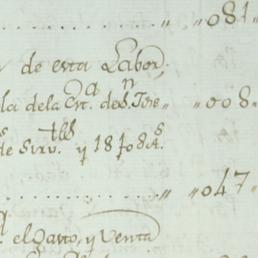 " " 081
de esta Labor,
la dela Crª. de Sn. Jose " 008
de Sirv.tes y 18 pos As
" " 047
el Gasto, y Venta